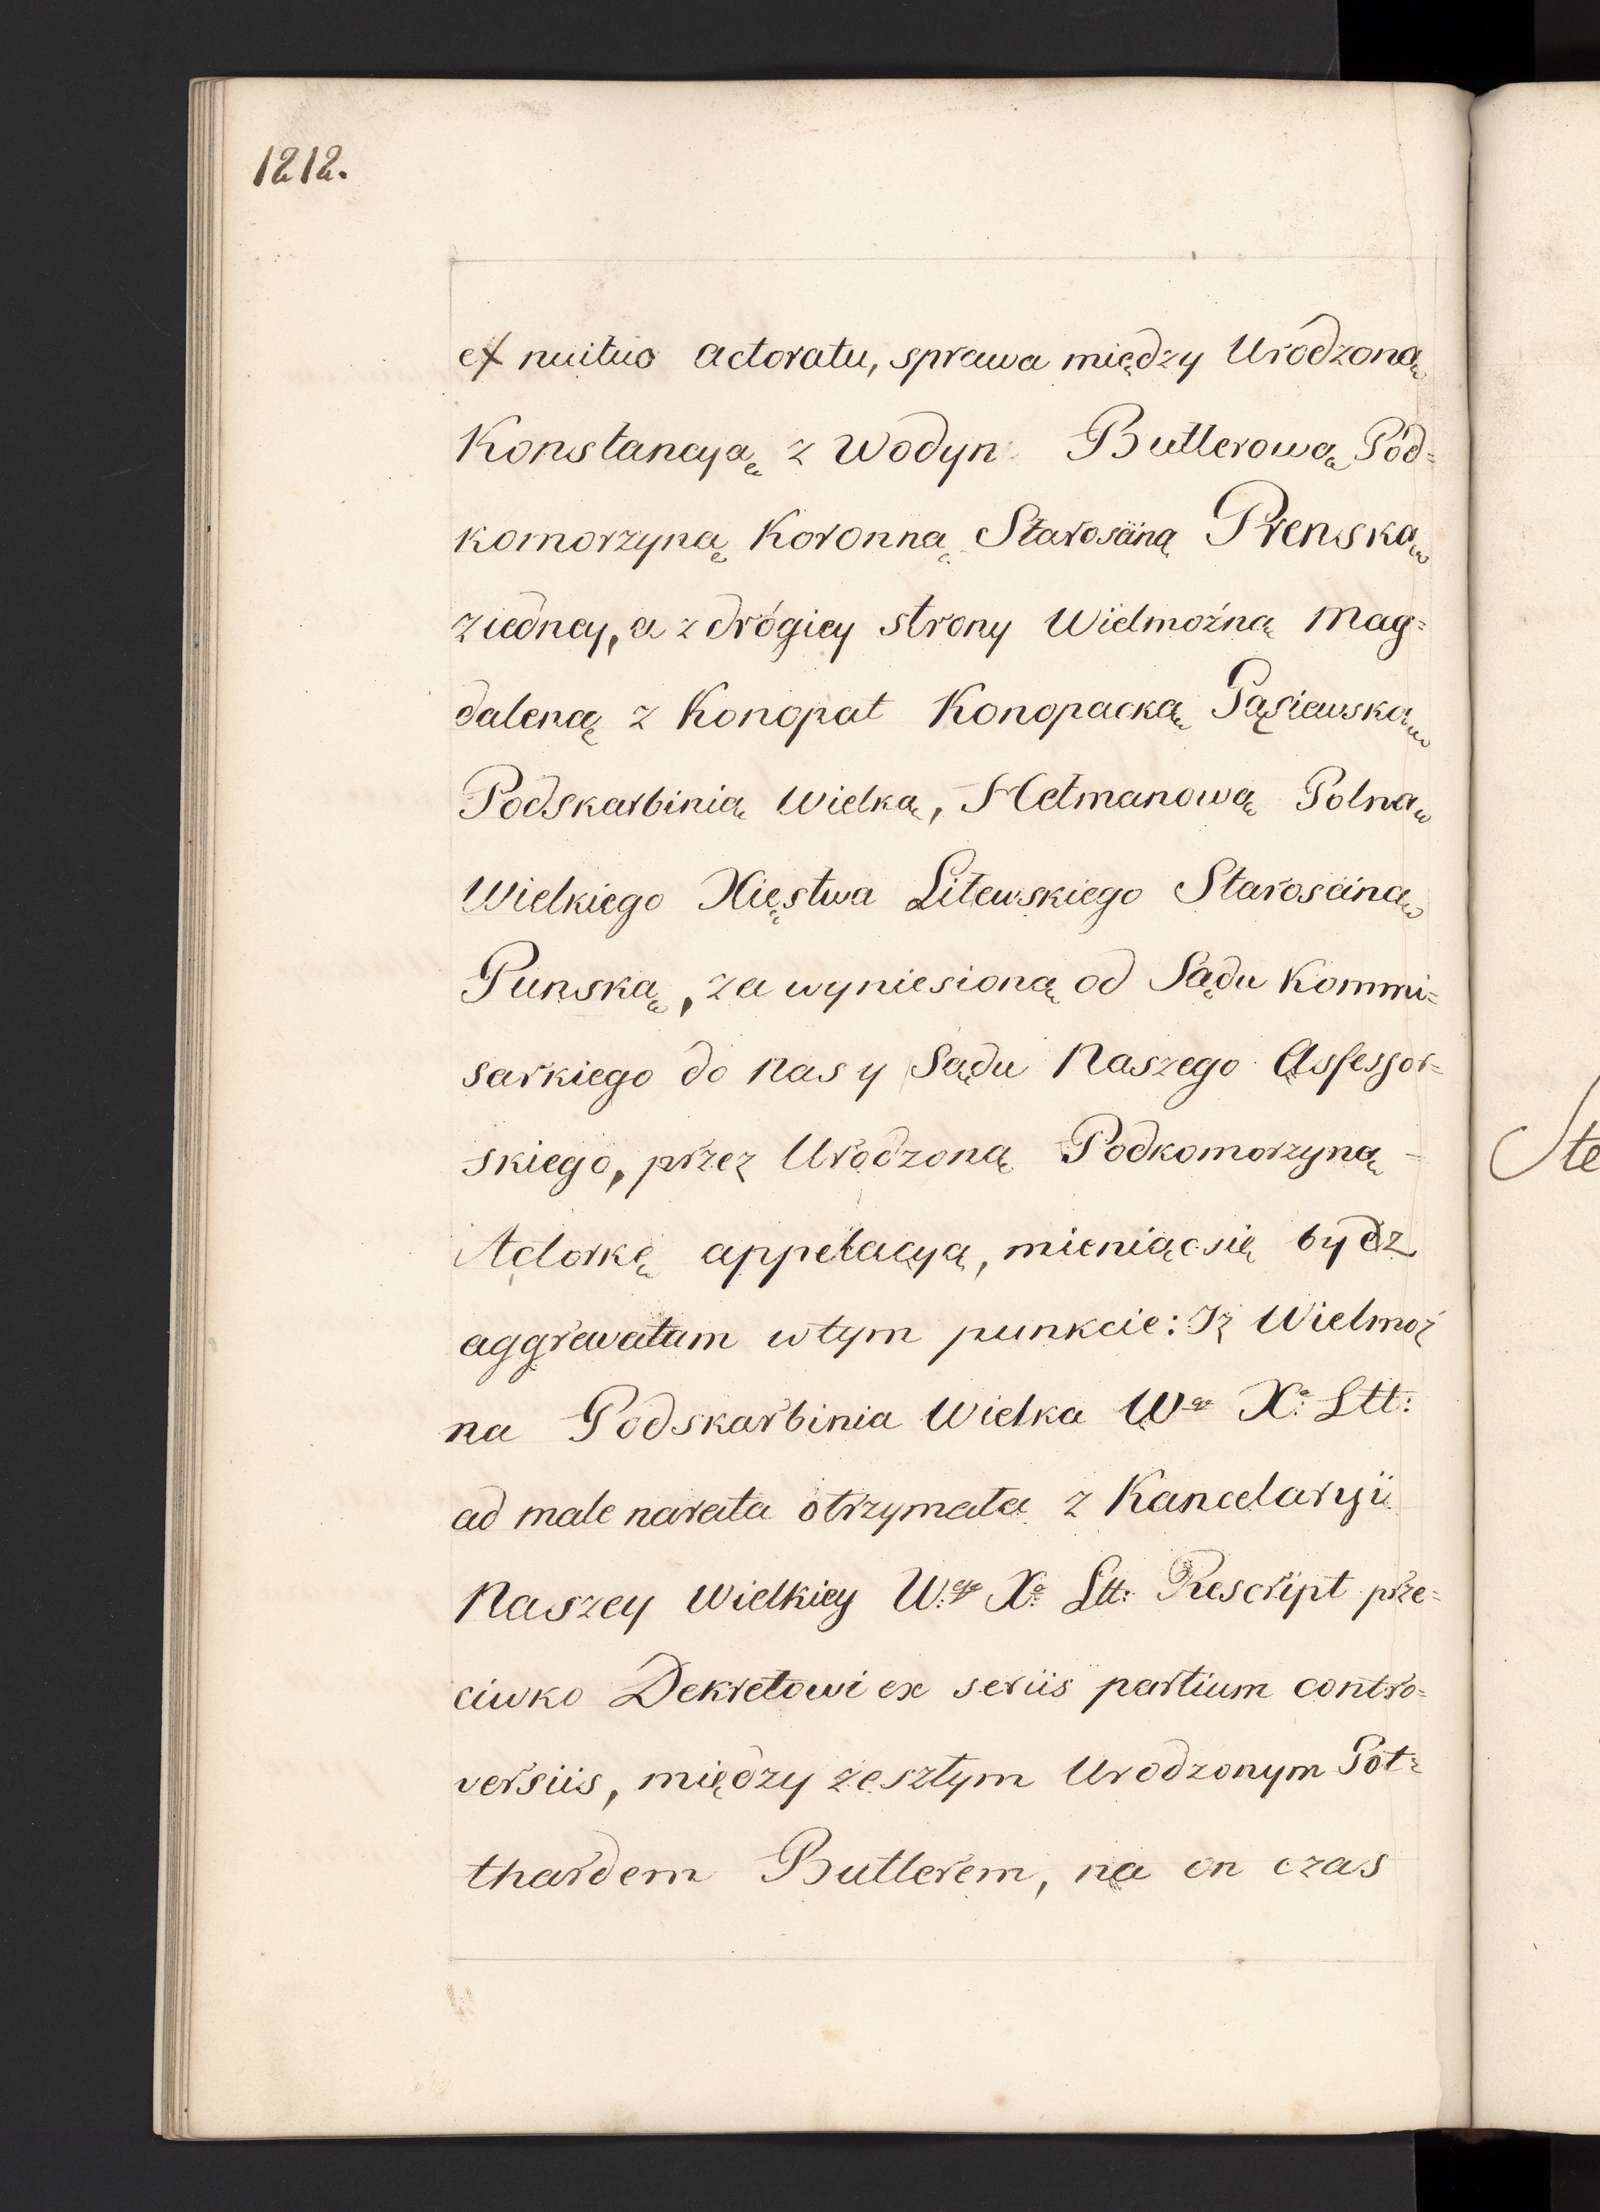 1212.
ex nuituo actoratu, sprawa między Urodzoną
Konstancyą z Wodyn Butlerową Pod=
komorzyną Koronną Starościną Prenską
z iedney, a z drógiey strony Wielmożną Mag=
daleną z Konopat Konopacką Gąsiewską
Podskarbinią Wielką, Hetmanową Polną
Wielkiego Xięstwa Litewskiego Starościną
Punską, za wyniesioną od Sądu Kommi=
sarkiego do Nas y Sądu Naszego Assessor=
skiego, przez Urodzoną Podkomorzyną
Actorkę appelacyą, mieniąc się bydz
aggravatam w tym punkcie: Iż Wielmoż
na Podskarbinia Wielka Wgo Xa: Litt:
ad male narata otrzymała z Kancelaryii
Naszey Wielkiey W:go Xa: Litt: Rescript prze=
ciwko Dekretowi ex seriis partium contro=
versiis, między zeszłym Urodzonym Got=
thardem Butlerem, na on czas
Ste